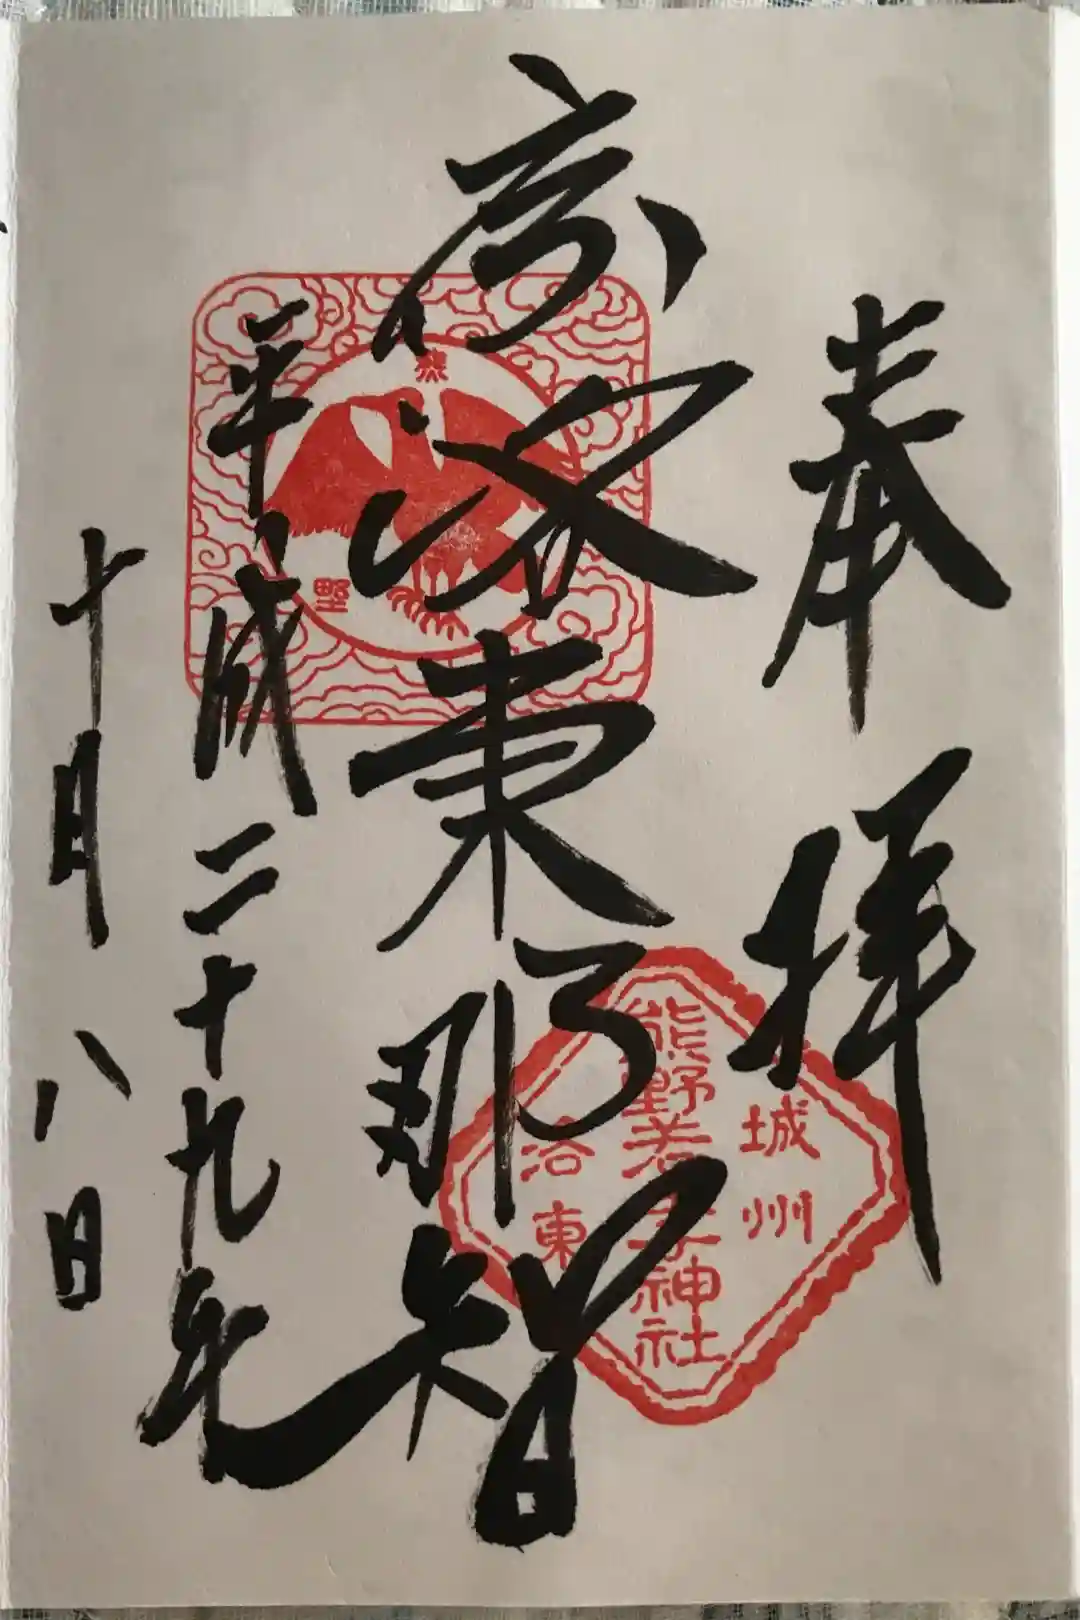 奉拝
京洛東那智
平成二十九年
十月八日
熊
野
城州
熊野若王子神社
洛東